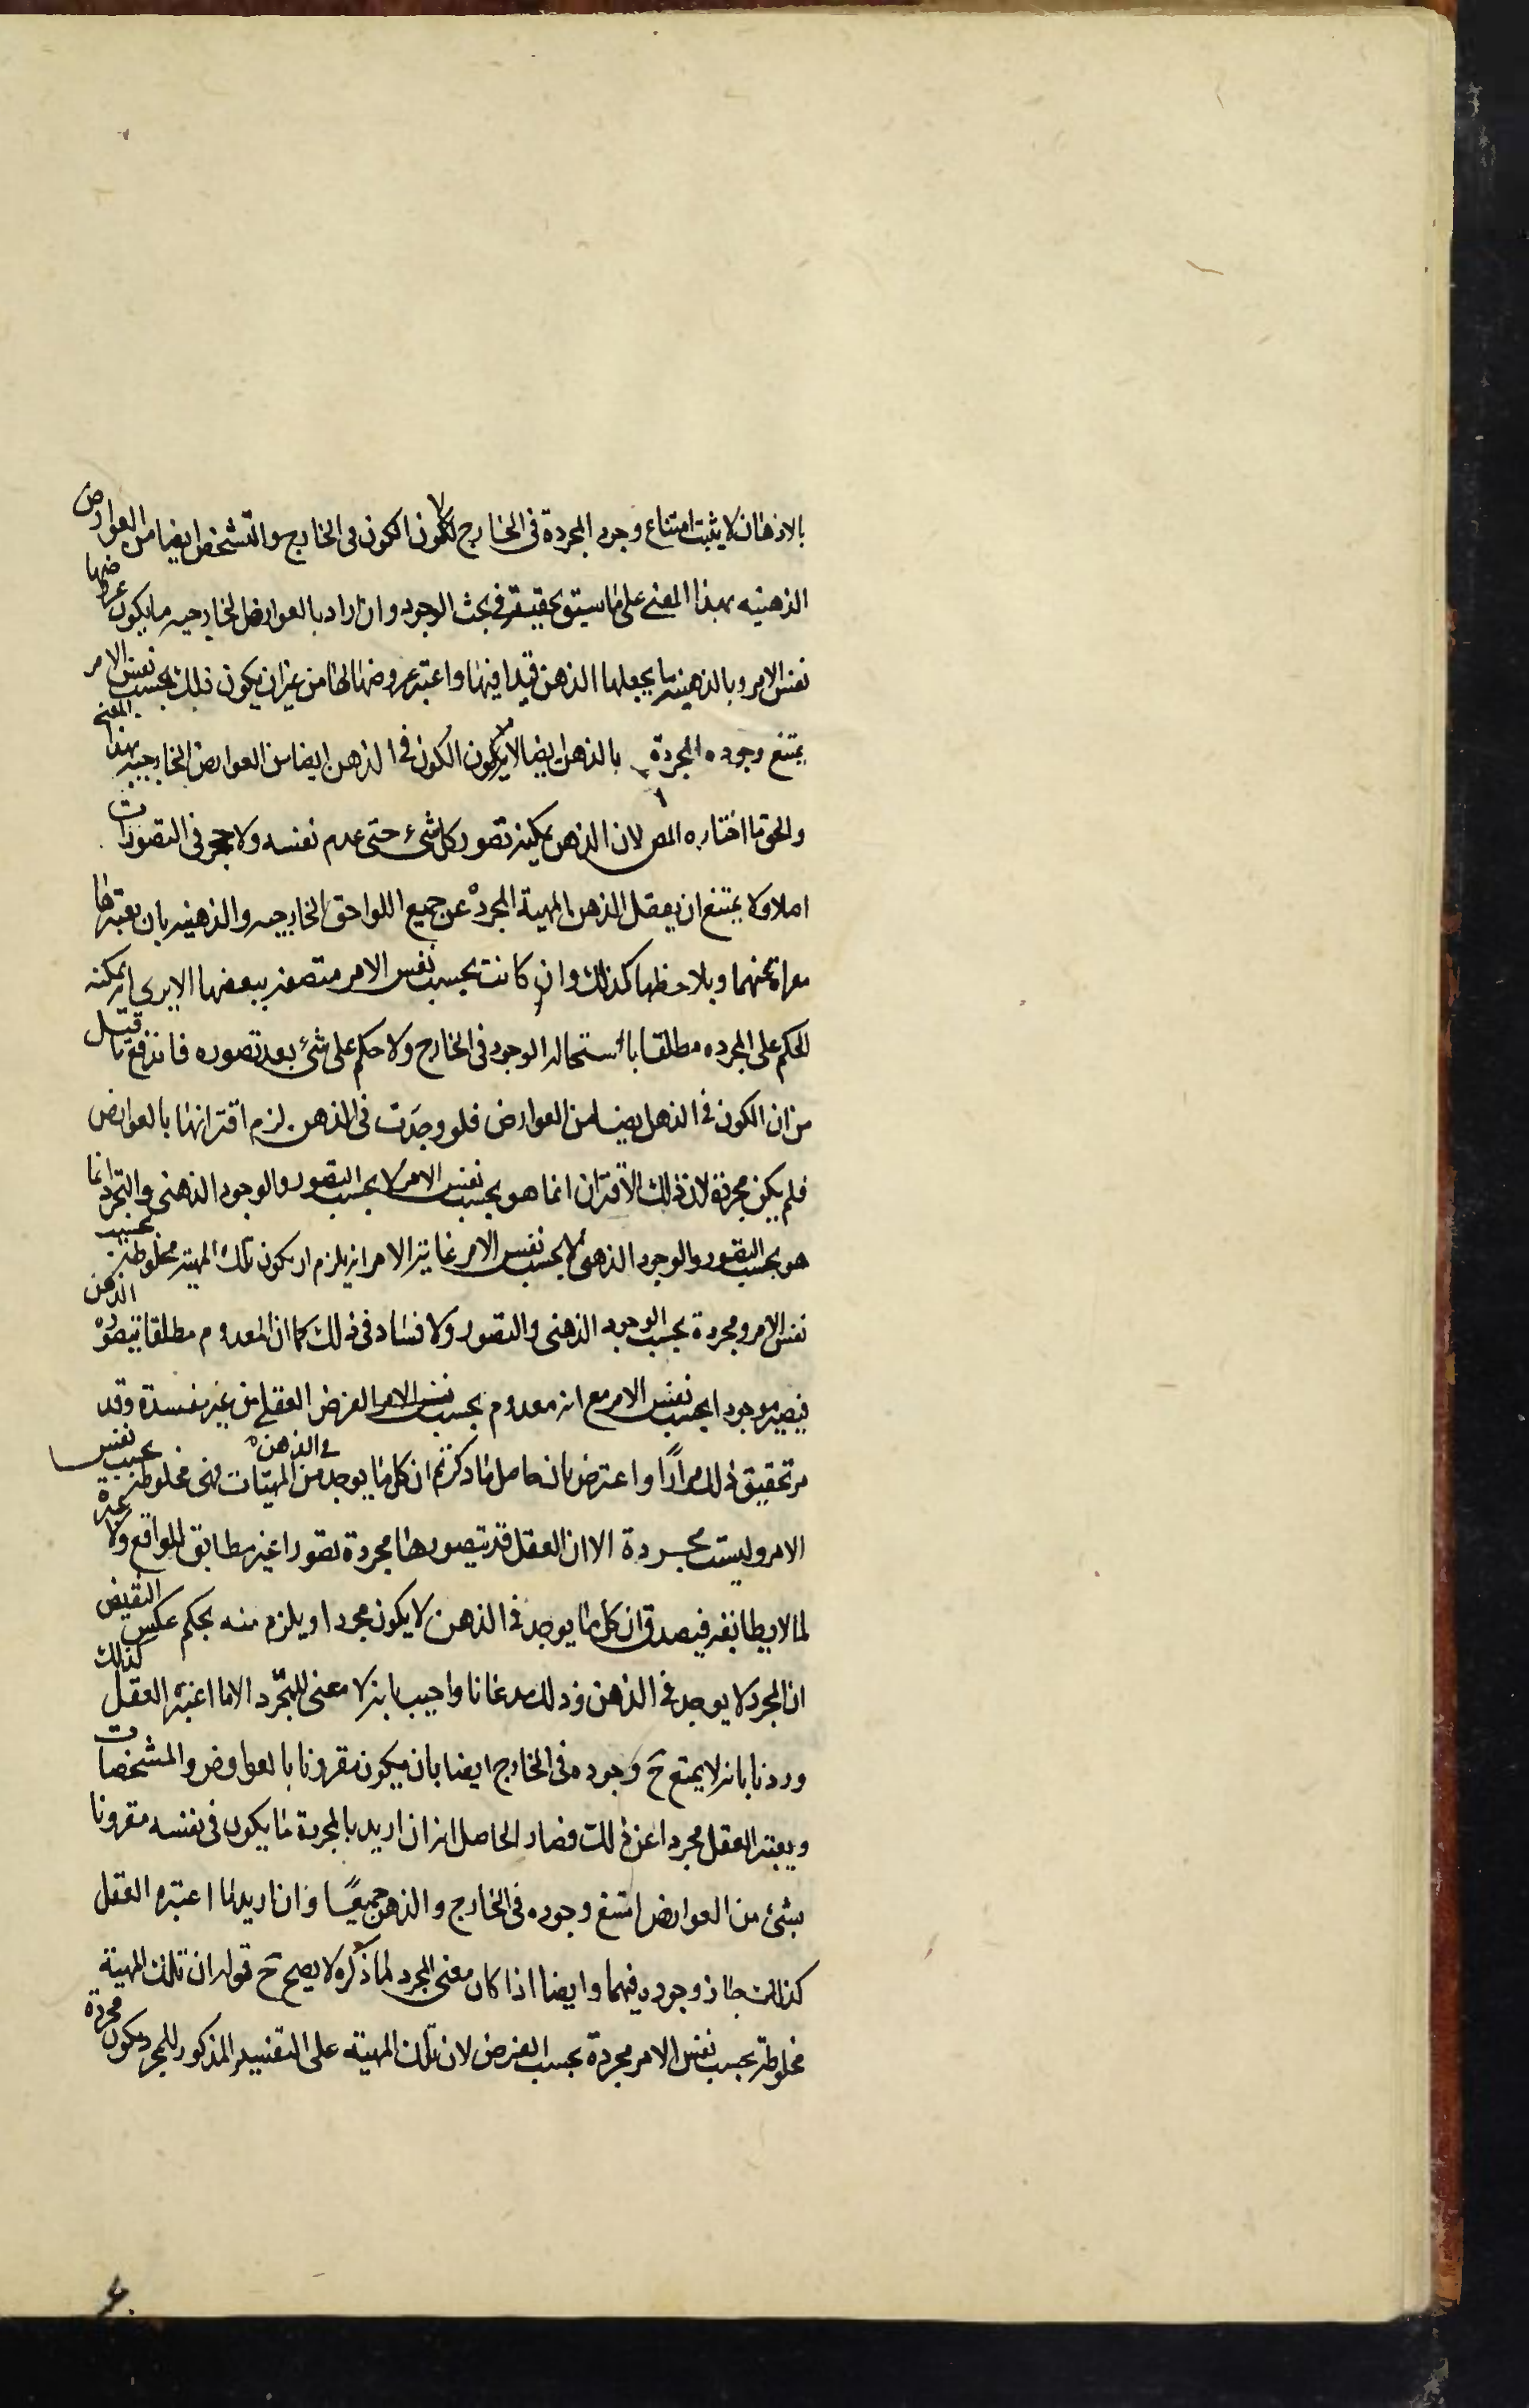 بالاذهان لا يثبت امتناع وجود المجردة فى الخارج لكون الكون فى الخارج والتشخص ايضا من العوارض
الذهنيه بهذا المعنى على ما سيق تحقيقه فى بحث الوجود وان اراد بالعوارض الخارجيه ما يكون عروضها
نفس الامر وبالذهنيه ما يجعلها الذهن قيدا فيها واعتبر عروضها لها من غير ان يكون ذلك بحسب نفس الامر
يمتنع وجوده المجردة بالذهن ايضا لا يكون الكون فى الذهن ايضا من العوارض الخارجيه بهذا المعنى
والحق ما اختاره المص لان الذهن يمكنه تصور كل شىء حتى عدم نفسه ولا حجر فى التصورات
اصلا ولا يمتنع ان يعقل الذهن المهية المجردة عن جميع اللواحق الخارجيه والذهنيه بان يعتبرها
معراة عنهما ويلاحظها كذلك وان كانت بحسب نفس الامر متصفه ببعضها الا يرى انه يمكنه
الحكم على المجرده مطلقا باستحاله الوجود فى الخارج ولا حكم على شئ بعد تصوره فاندفع ما قيل
من ان الكون فى الذهن ايضا من العوارض فلو وجدت فى الذهن لزم اقترانها بالعوارض
فلم يكن مجردة لان ذلك الاقتران انما هو بحسب نفس الامر لا بحسب التصور والوجود الذهنى والتجرد انما
هو بحسب التصور والوجود الذهنى لا بحسب نفس الامر غاية الامر انه يلزم ان يكون تلك المهية مخلوطة بحسب
نفس الامر ومجردة بحسب الوجود الذهنى والتصور ولا فساد فى ذلك كما ان المعدوم مطلقا يتصوره الذهن
فيصير موجودا بحسب نفس الامر مع انه معدوم بحسب نفس الامر الفرض العقلى من غير مفسدة وقد
مر تحقيق ذلك مرارًا واعترض بان حاصل ما ذكرتم ان كل ما يوجد فى الذهن من المهيات فهى مخلوطة بحسب نفس
الامر وليست مجردة الا ان العقل قد يتصورها مجردة تصورا غير مطابق للواقع ولا عبرة
لما لا يطابقه فيصدق ان كل ما يوجد فى الذهن لا يكون مجردا ويلزم منه بحكم عكس النقيض
ان المجرد لا يوجد فى الذهن وذلك مدعانا واجيب بانه لا معنى للمجرد الا ما اعتبره العقل كذلك
وردنا بانه لا يمتنع ح وجوده فى الخارج ايضا بان يكون مقرونا بالعوارض والمشخصات
ويعتبر العقل مجردا عن ذلك فصار الحاصل انه ان اريد بالمجردة ما يكون فى نفسه مقرونا
بشئ من العوارض امتنع وجوده فى الخارج والذهن جميعًا وان اريد ما اعتبره العقل
كذلك جاز وجوده فيهما وايضا اذا كان معنى المجرد لما ذكره لا يصح ح قوله ان تلك المهية
مخلوطة بحسب نفس الامر مجردة بحسب الفرض لان تلك المهية على التفسير المذكور للمجرد يكون مجردة